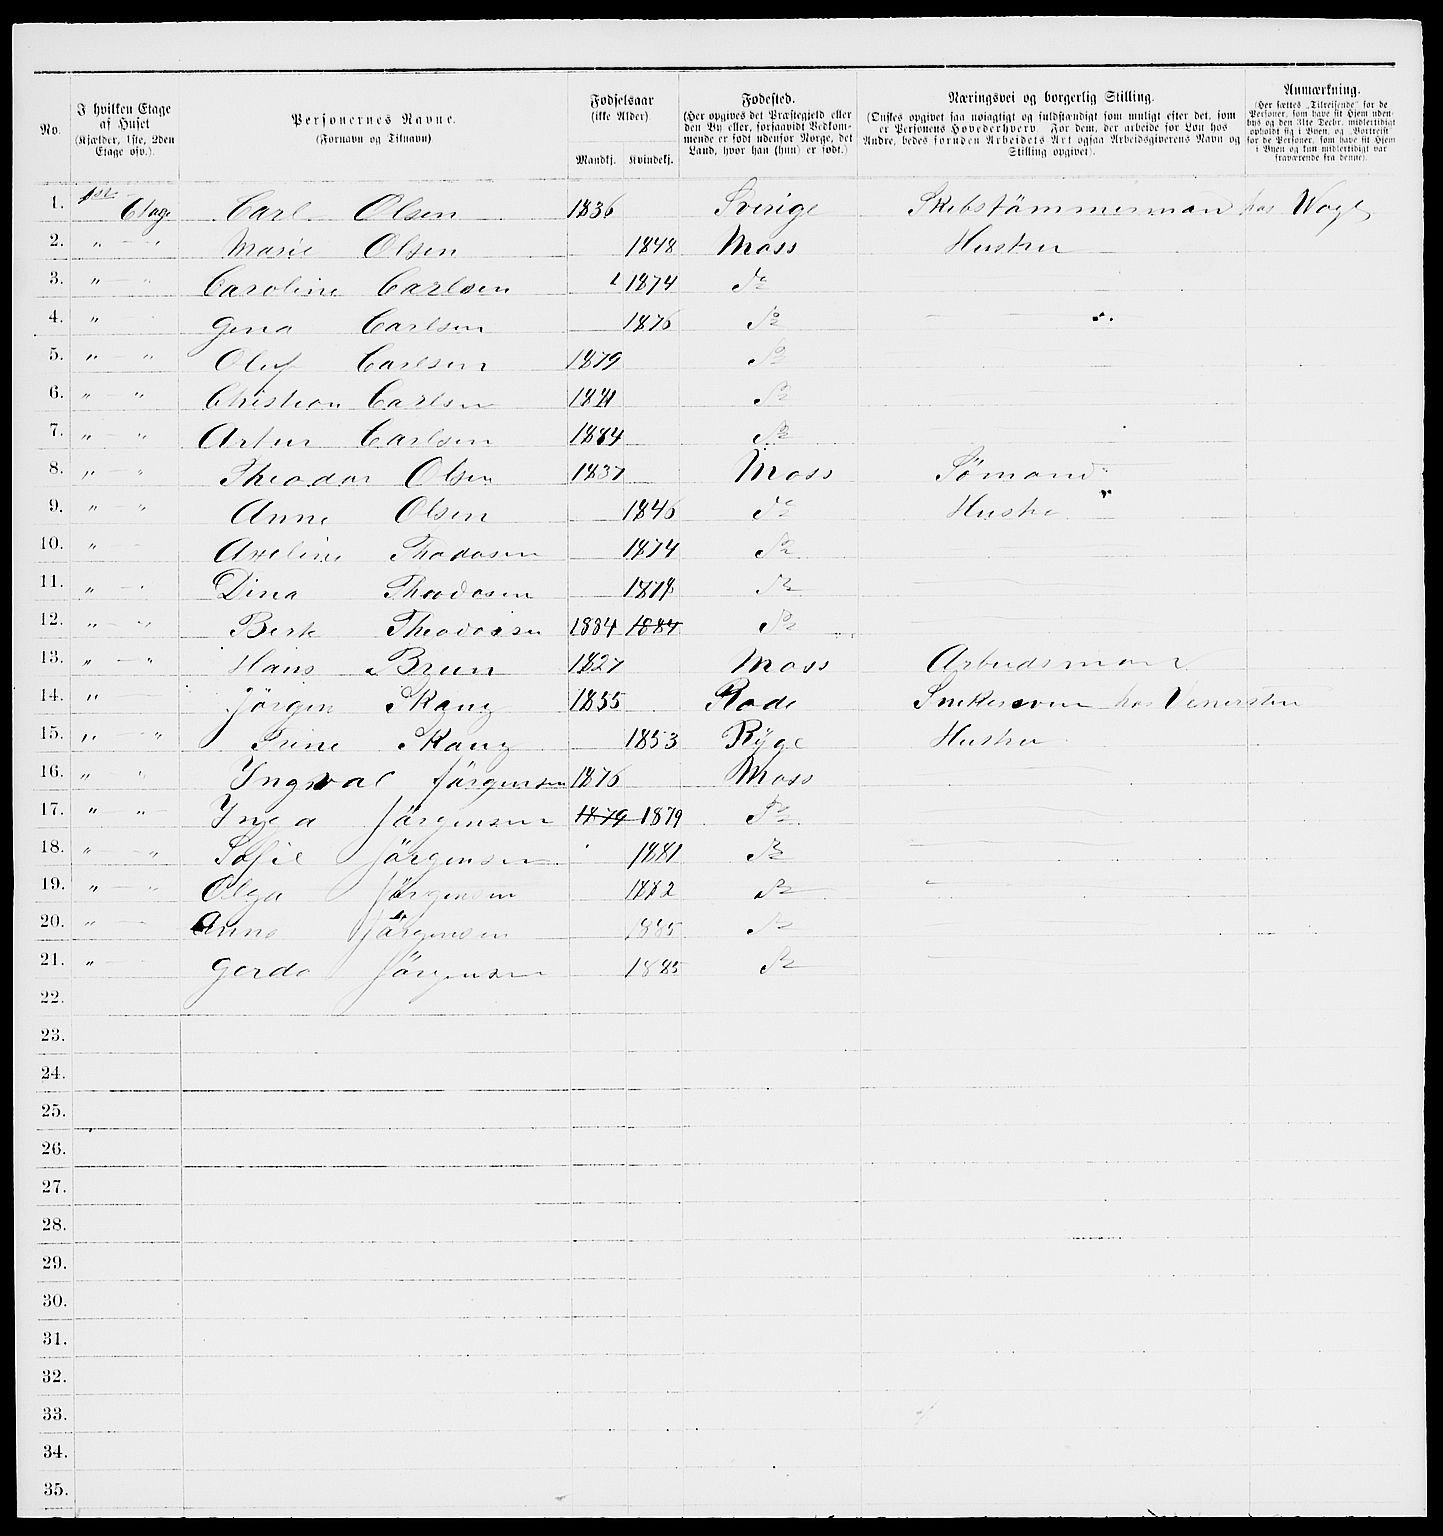 No.
I hvilken Etage af Huset (Kjælder, 1ste, 2den Etage osv.).
Personernes Navne. (Fornavn og Tilnavn)
Fødselsaar (ikke Alder) Mandkj. Kvindekj.
Fødested. (Her opgives det Præstegjeld eller den By eller, forsaavidt Vedkommende er født udenfor Norge, det Land, hvor han (hun) er født.)
Næringsvei og borgerlig Stilling. (Ønskes opgivet saa nøiagtigt og fuldstændigt som muligt efter det, som er Personens Hovederhverv. For dem, der arbeide for Løn hos Andre, bedes foruden Arbeidets Art ogsaa Arbeidsgiverens Navn og Stilling opgivet).
Anmærkning. (Her sættes „Tilreisende" for de Personer, som have sit Hjem udenbys og den 31te Decbr. midlertidigt opholdt sig i Byen, og „Bortreist" for de Personer, som have sit Hjem i Byen og kun midlertidigt var fraværende fra denne).
1. 1ste Etage Carl Olsen 1836 Sverige Skibstömmerman hos Vogt
2. " — " Marie Olsen 1848 Moss Hustru
3. " — " Caroline Carlsen 1874 do
4. " Gena Carlsen 1876 do
5. " — " Oluf Carlsen 1879 do
6. " — " Christian Carlsen 1881 do
7. " — " Artur Carlsen 1884 do
8. " — " Theodor Olsen 1837 Moss Sömand
9. " — " Anne Olsen 1846 do Hustru
10. " Axeline Thodosen 1874 do
11. " — " Dina Theodosen 1878 do
12. " — " Theodorsen 1884 1884 do
13. " — " Hans Brun 1827 Moss Arbeidsman
14. " — Jörgen Skaug 1855 Rade Snekersven hos
15. " — " Trine Skaug 1853 Ryge Hustru
16. " — " Yngval Jörgensen 1876 Moss
17. " — " Ynga Jörgensen 1879 1879 do
18. " — " Sofie Jörgensen 1881 do
19. " — " Olga Jörgensen 1882 do
20. " — Anna Jörgensen 1885 do
21. " — Gerda Jörgensen 1885 do
22.
23.
24.
25.
26.
27.
28.
29.
30.
31.
32.
33.
34.
35.